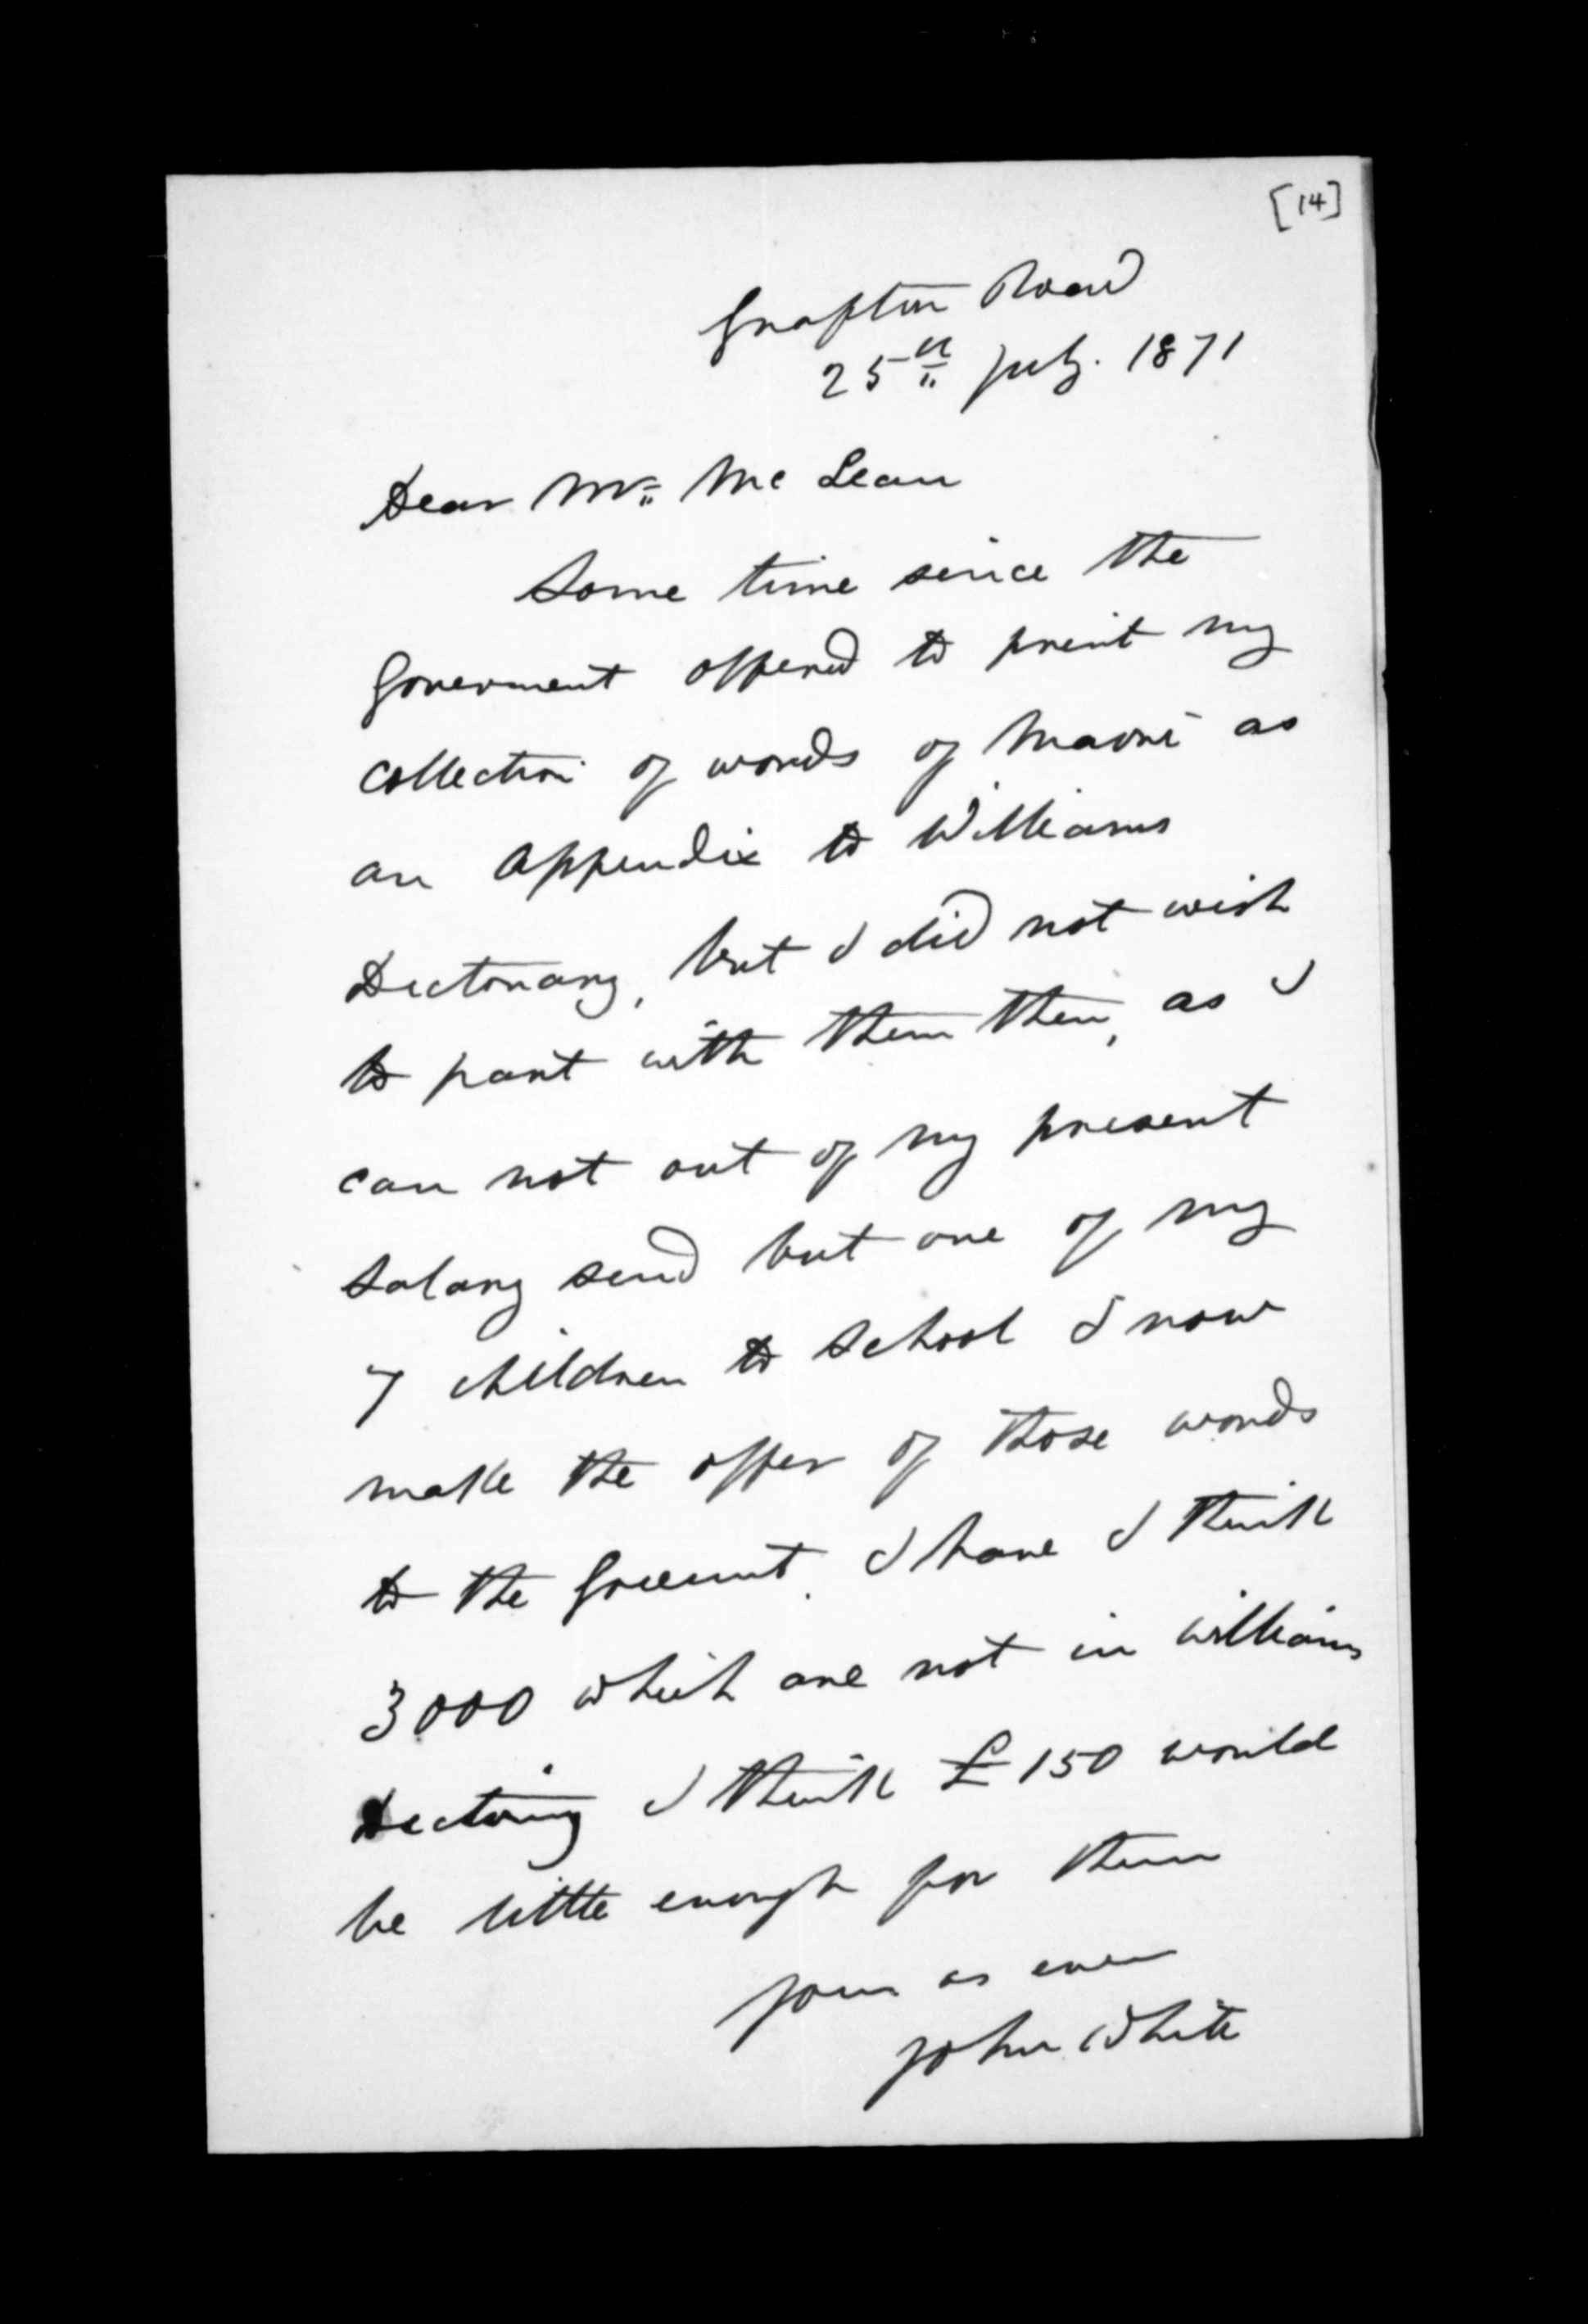 [14]
Grafton Road
25th July. 1871
Dear Mr. Mc Lean
Some time since the
Goverment offered to print my
collection of words of Maori as
an Appendix to Williams
Dictonary, but I did not wish
to part with them then, as I
can not out of my present
salary send but one of my
7 children to school I now
make the offer of those words
to the Goverment. I have I think
3000 which are not in Williams
Dictonary I think £150 would
be little enough for them
yours as ever
John White